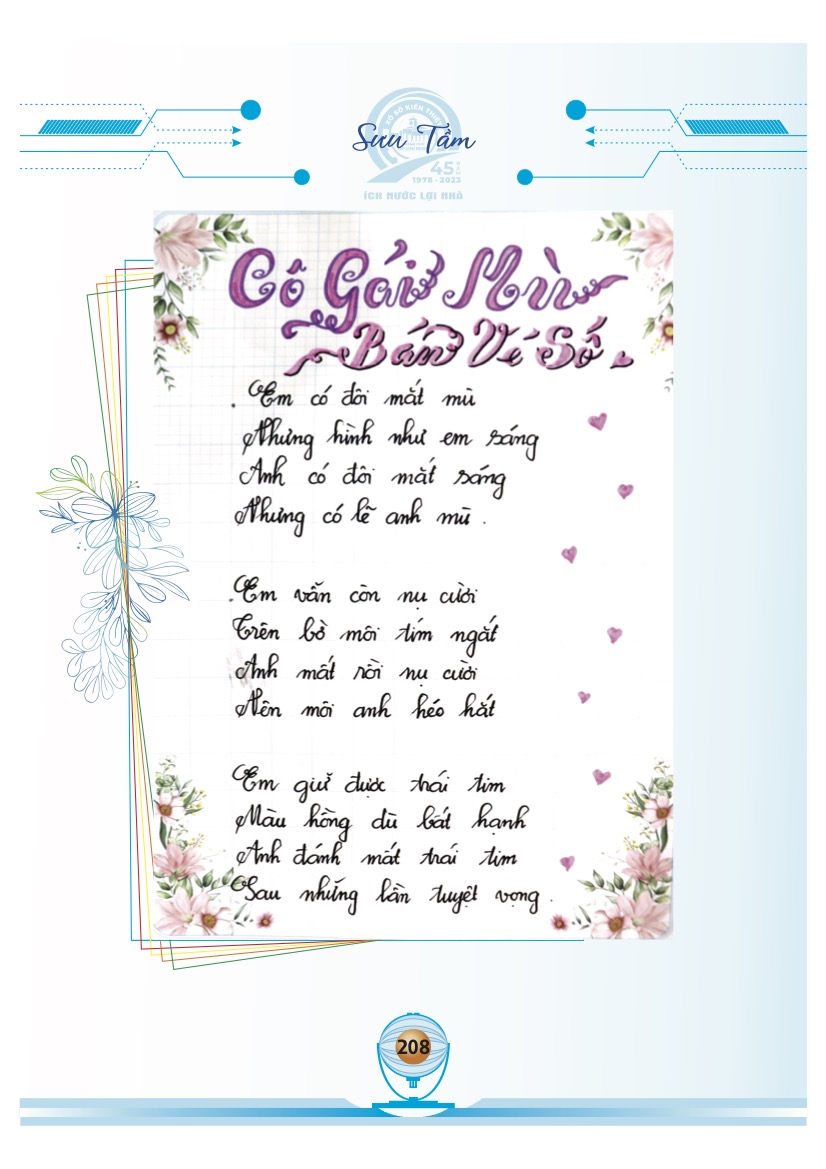 XỔ SỐ KIẾN THIẾT
Sưu Tầm
45 NĂM
1978 - 2023
ÍCH NƯỚC LỢI NHÀ
Cô Gái Mù
Bán Vé Số
. Em có đôi mắt mù
Nhưng hình như em sáng
Anh có đôi mắt sáng
Nhưng có lẽ anh mù .
. Em vẫn còn nụ cười
Trên bờ môi tím ngắt
Anh mất rồi nụ cười
Nên môi anh héo hắt
Em giữ được trái tim
Màu hồng dù bất hạnh
Anh đánh mất trái tim
Sau những lần tuyệt vọng .
208